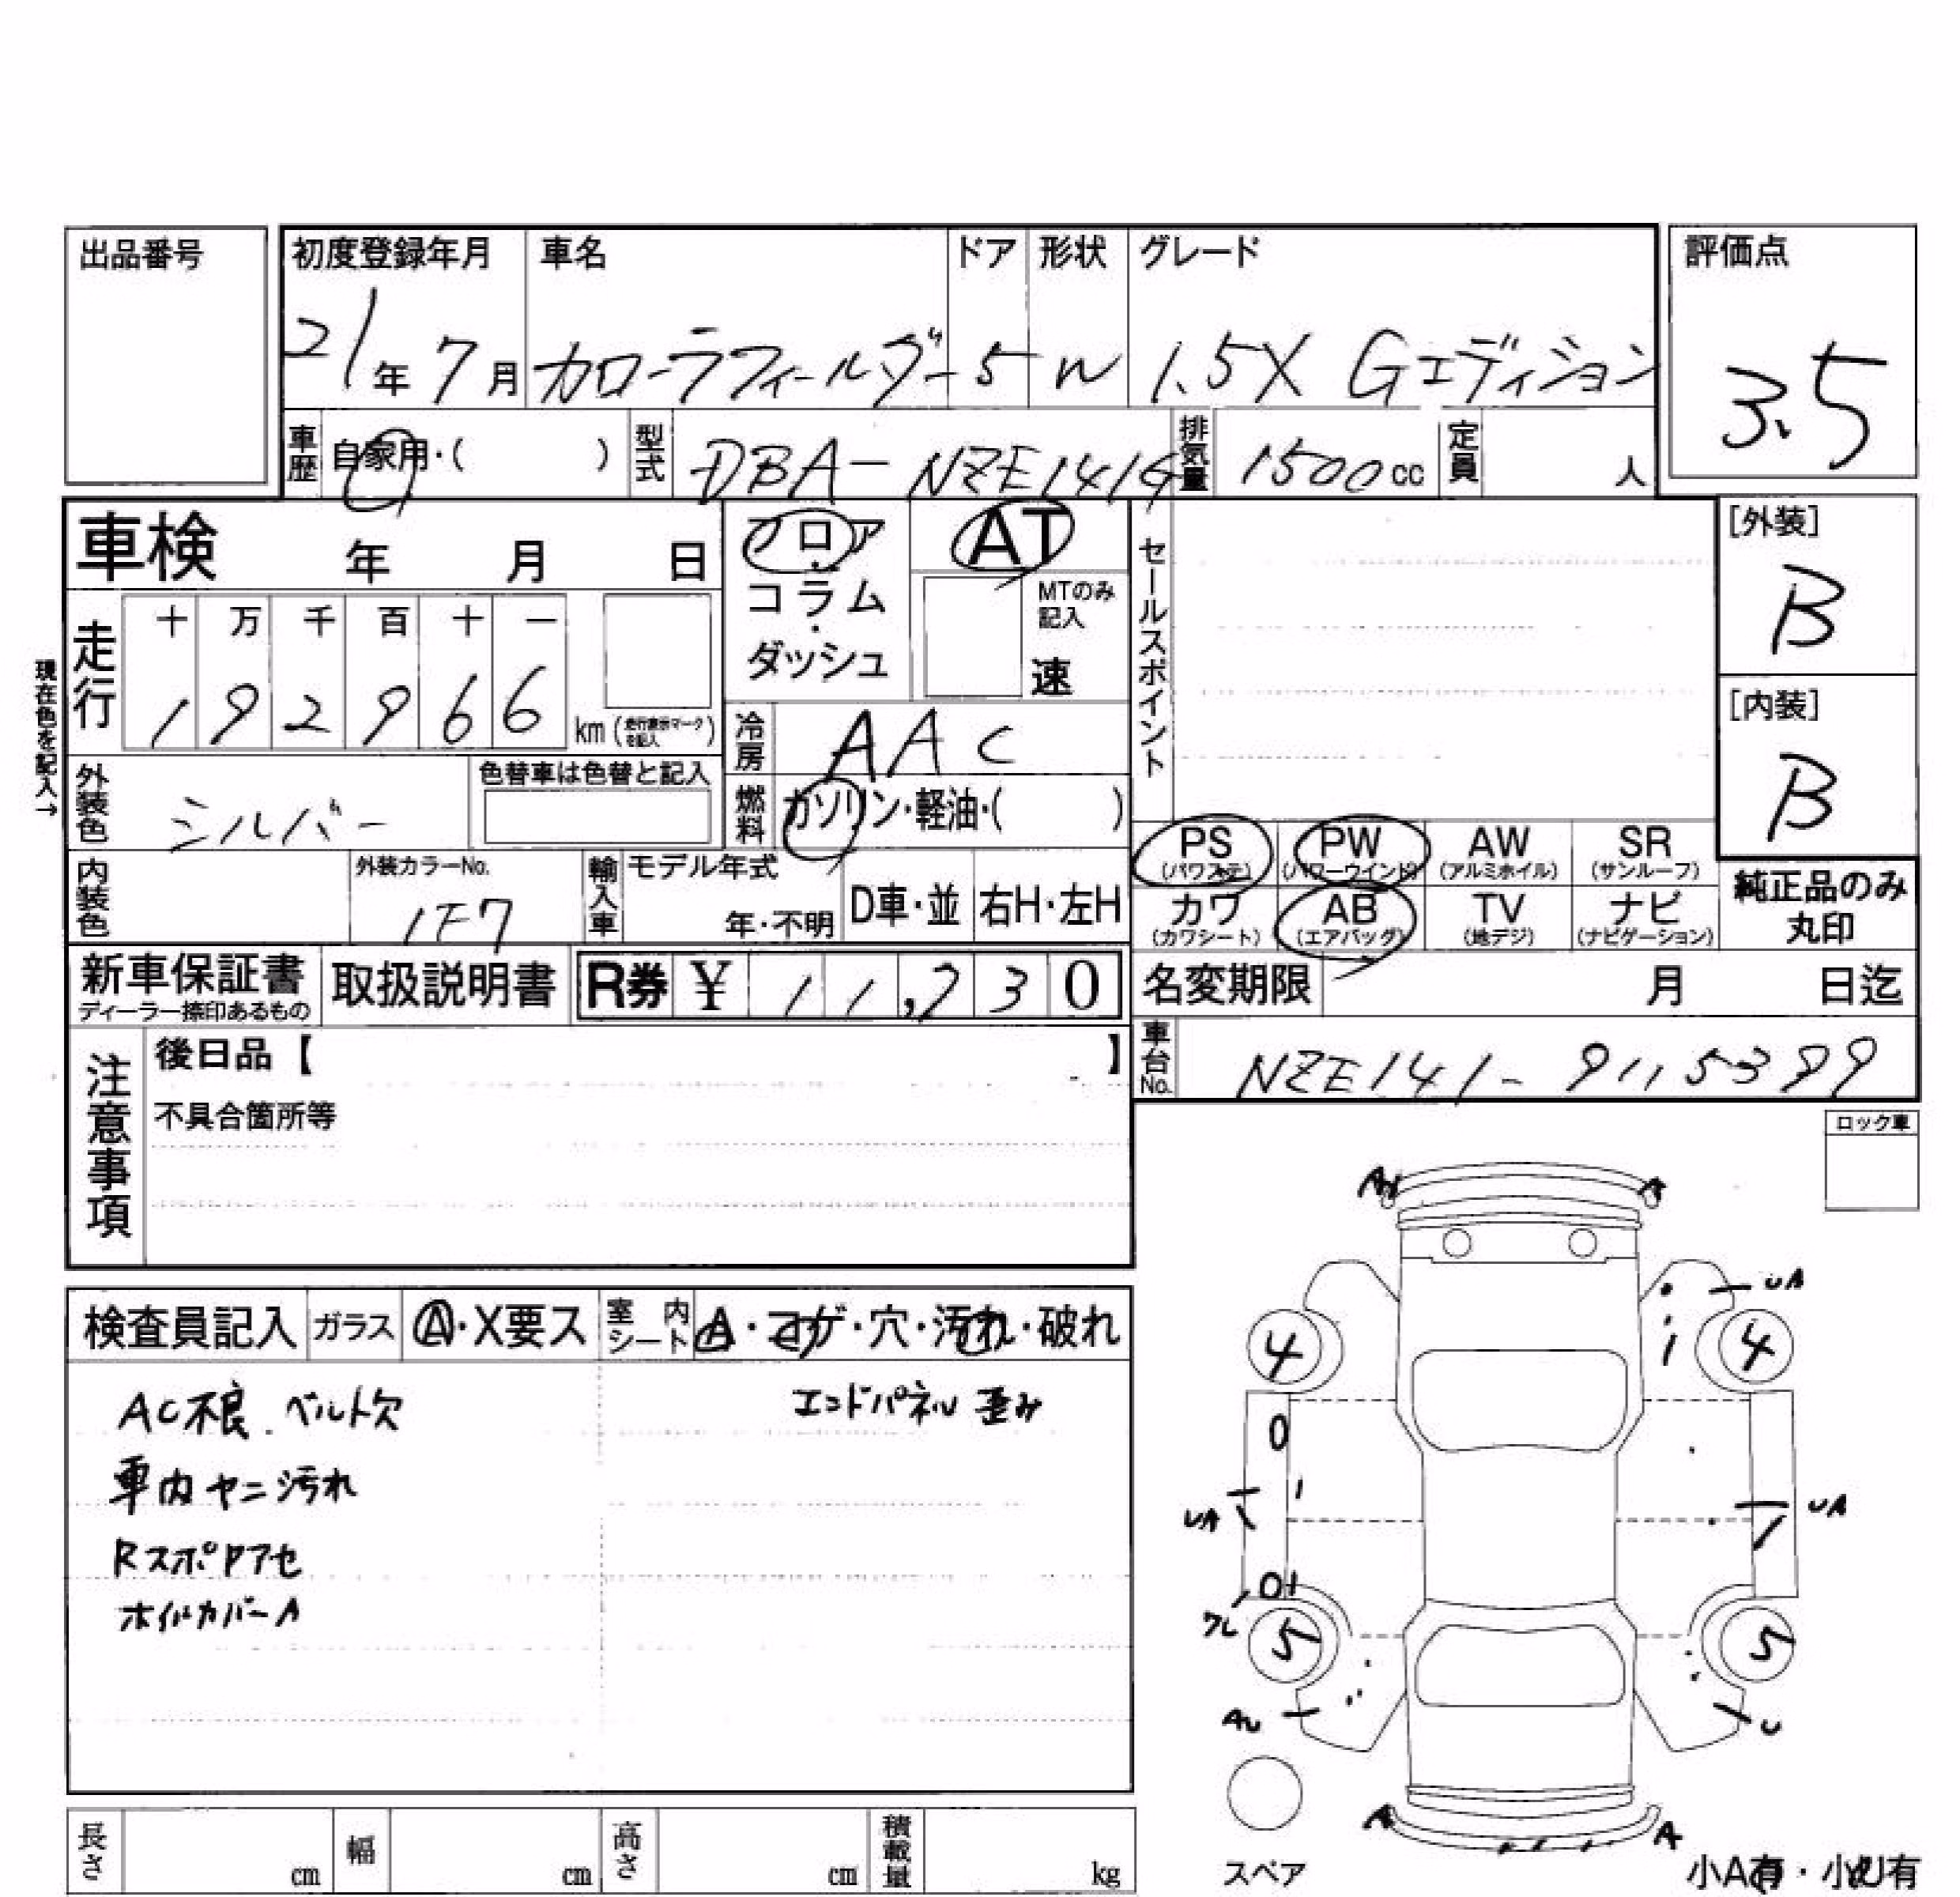 出品番号
初度登録年月 車名 ドア 形状 グレード 評価点
21年7月 カローラフィールダー 5 W 1.5X Gエディション
3.5
車歴 自家用・( ) 型式 DBA-NZE141G 排気量 1500cc 定員 人
車検 年 月 日
フロア・コラム・ダッシュ
AT
MTのみ記入
速
セールスポイント
[外装]
B
[内装]
B
現在色を記入→
走行 十 万 千 百 十 一
1 9 2 9 6 6 km (走行表示マークを記入)
冷房 AAC
外装色 シルバー
色替車は色替と記入
燃料 ガソリン・軽油・( )
PS (パワステ) PW (パワーウインド) AW (アルミホイル) SR (サンルーフ)
カワ (カワシート) AB (エアバッグ) TV (地デジ) ナビ (ナビゲーション)
純正品のみ丸印
内装色
外装カラーNo.
1F7
輸入車 モデル年式 年・不明 D車・並 右H・左H
新車保証書
ディーラー捺印あるもの
取扱説明書
R券 ¥ 11,230
名変期限 月 日迄
車台No. NZE141-9115399
注意事項
後日品【 】
不具合箇所等
ロック車
検査員記入 ガラス A・X要ス 室内シート A・コゲ・穴・汚れ・破れ
AC不良. ベルト欠 エンドパネル 歪み
車内ヤニ汚れ
RスポPアセ
ホイルカバーA
A A
UA
4 4
0
1
UA UA
01
5 5
AU U
A A
スペア
小A有・小U有
長さ cm 幅 cm 高さ cm 積載量 kg